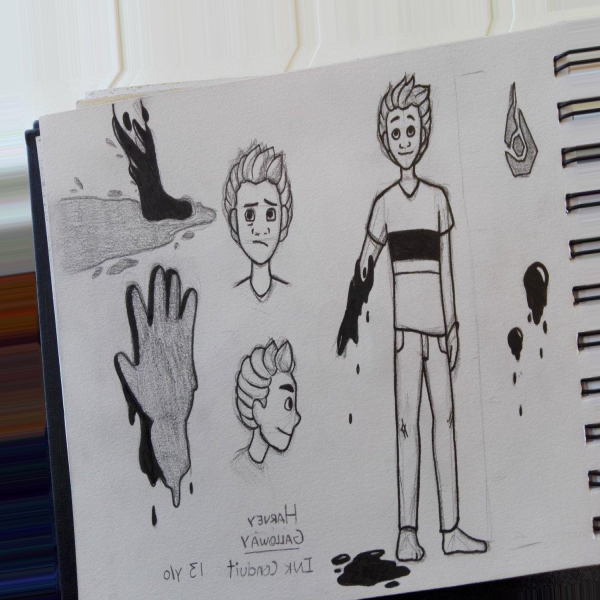 HARVEY
GALLOWAY
INK CONDUIT 13 y/o